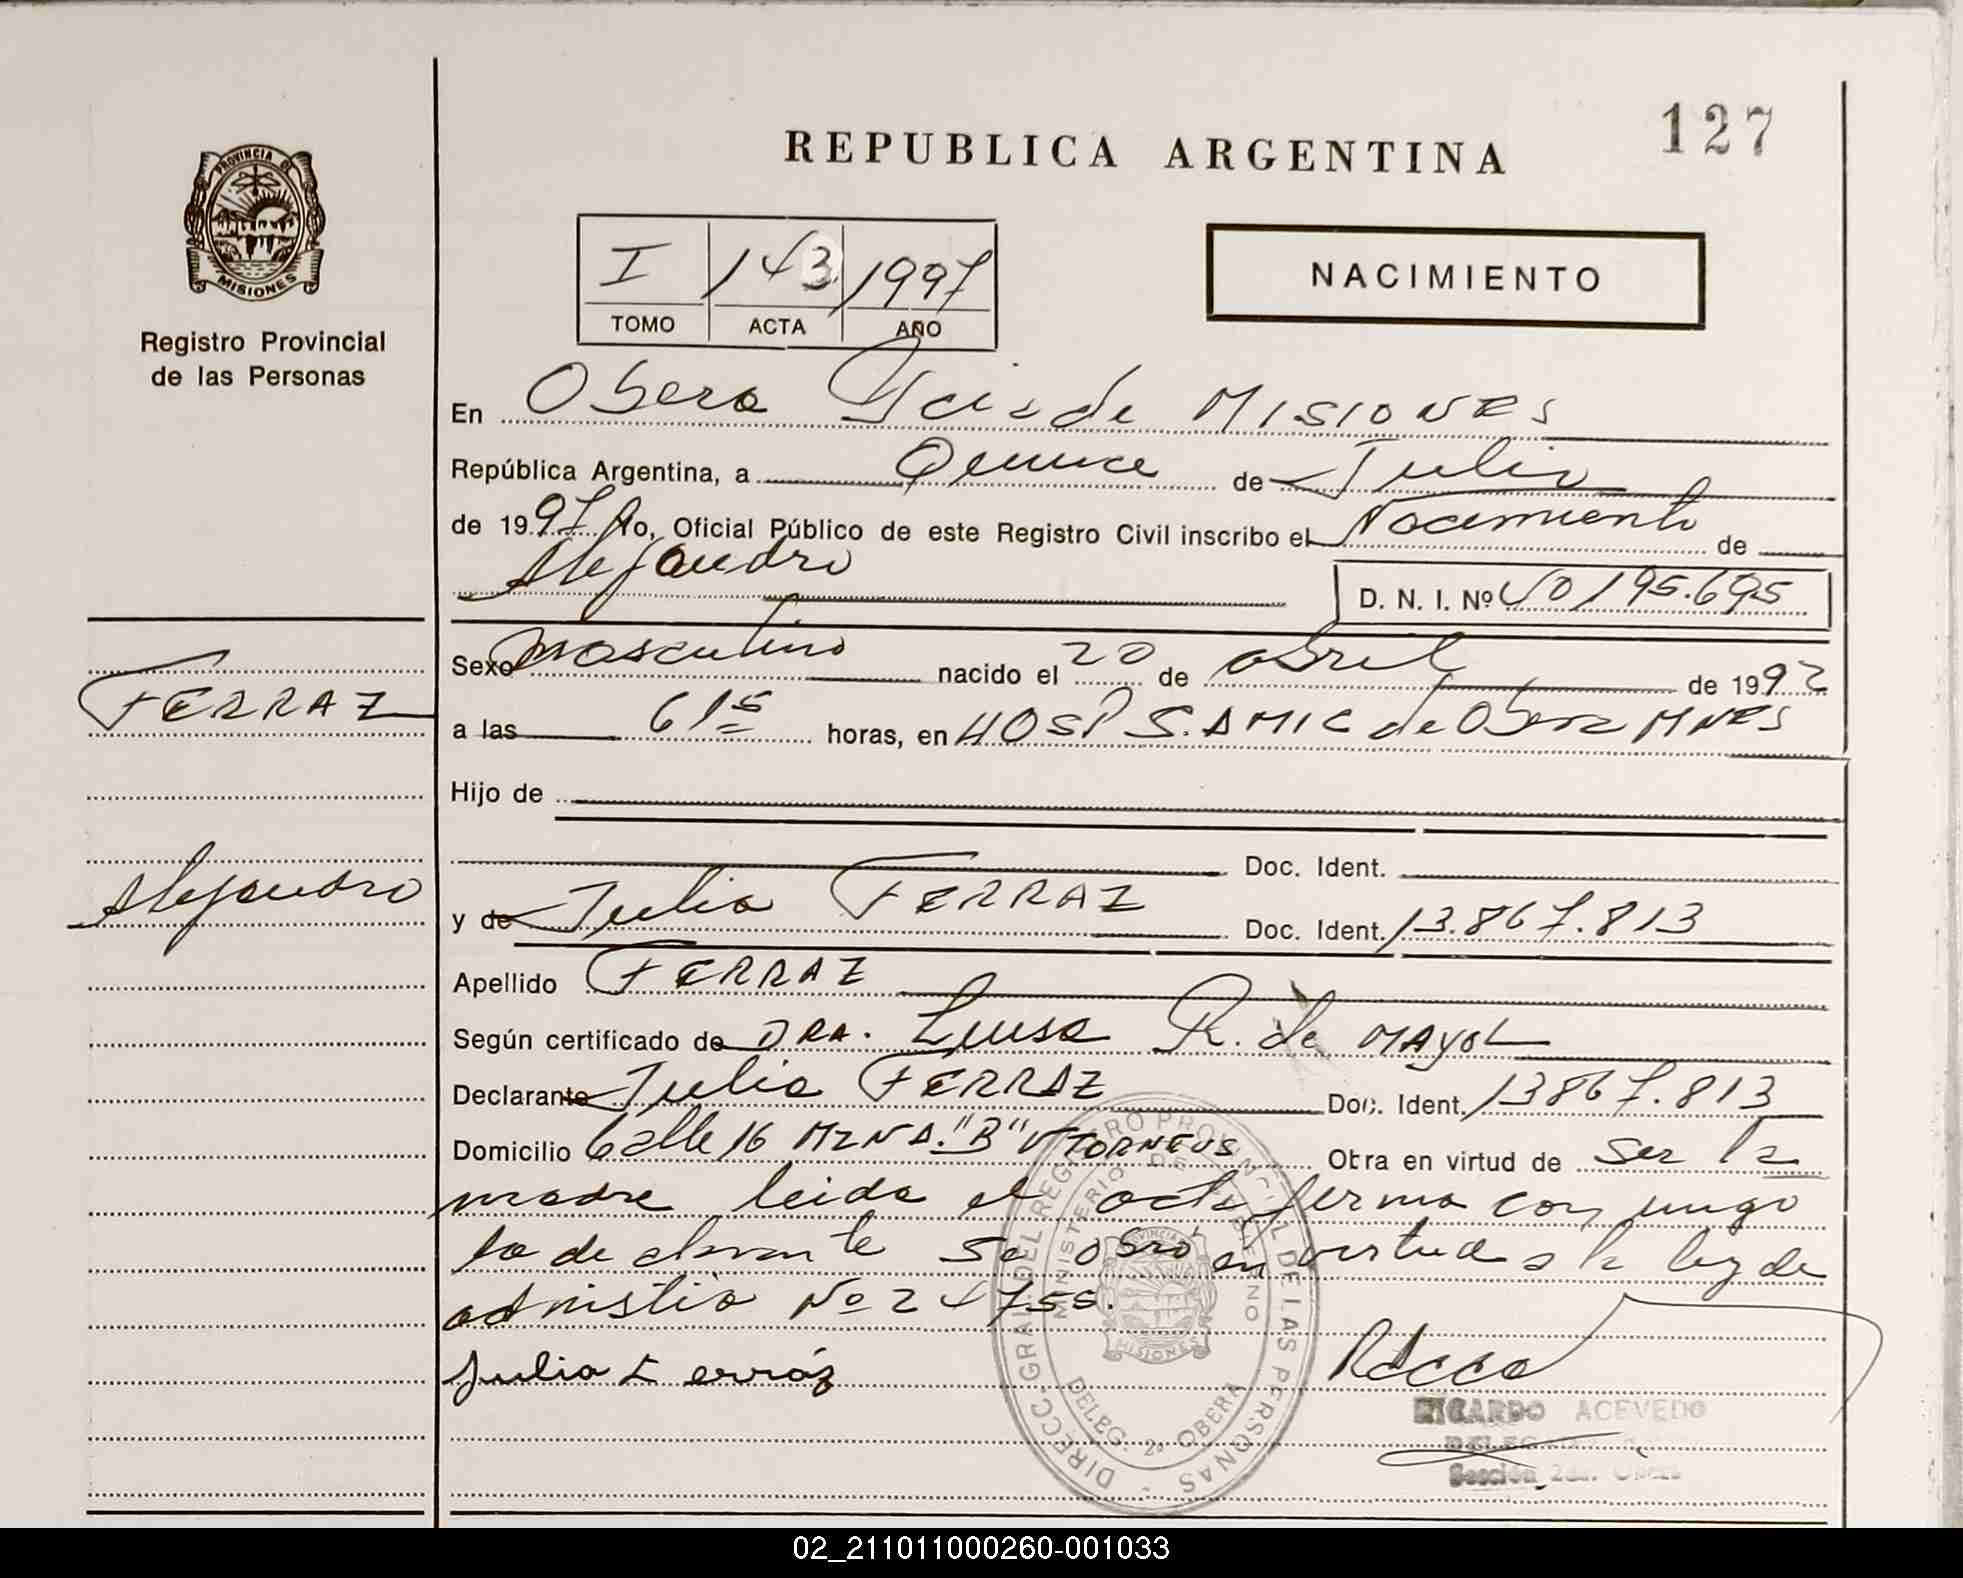 127
REPUBLICA ARGENTINA
PROVINCIA DE
MISIONES
Registro Provincial
de las Personas
I 143 1997
TOMO ACTA AÑO
NACIMIENTO
En Obera Pcia de MISIONES
República Argentina, a Quince de Julio
de 1997 Yo, Oficial Público de este Registro Civil inscribo el Nacimiento de
Alejandro
D. N. I. Nº 40195.695
FERRAZ
Sexo masculino nacido el 20 de abril de 1992
a las 6 15 horas, en HOSP S.AMIC de Obera MNES
Hijo de
Doc. Ident.
Alejandro
y de Julia FERRAZ Doc. Ident. 13.867.813
Apellido FERRAZ
Según certificado de DRA. Luisa R. de MAYOL
Declarante Julia FERRAZ Doc. Ident. 13867.813
Domicilio Calle 16 MZNA. "B" Obra en virtud de ser la
madre leida el acta firma conmigo
la declarante Se obró en virtud a la ley de
admistia Nº 24755.
Julia Ferráz
DIRECC. GRAL DEL REGISTRO PROVINCIAL DE LAS PERSONAS
MINISTERIO DE GOBIERNO
PROVINCIA
MISIONES
DELEG. 2ª OBERA
RICARDO ACEVEDO
Sección 2da. Obera
02_211011000260-001033